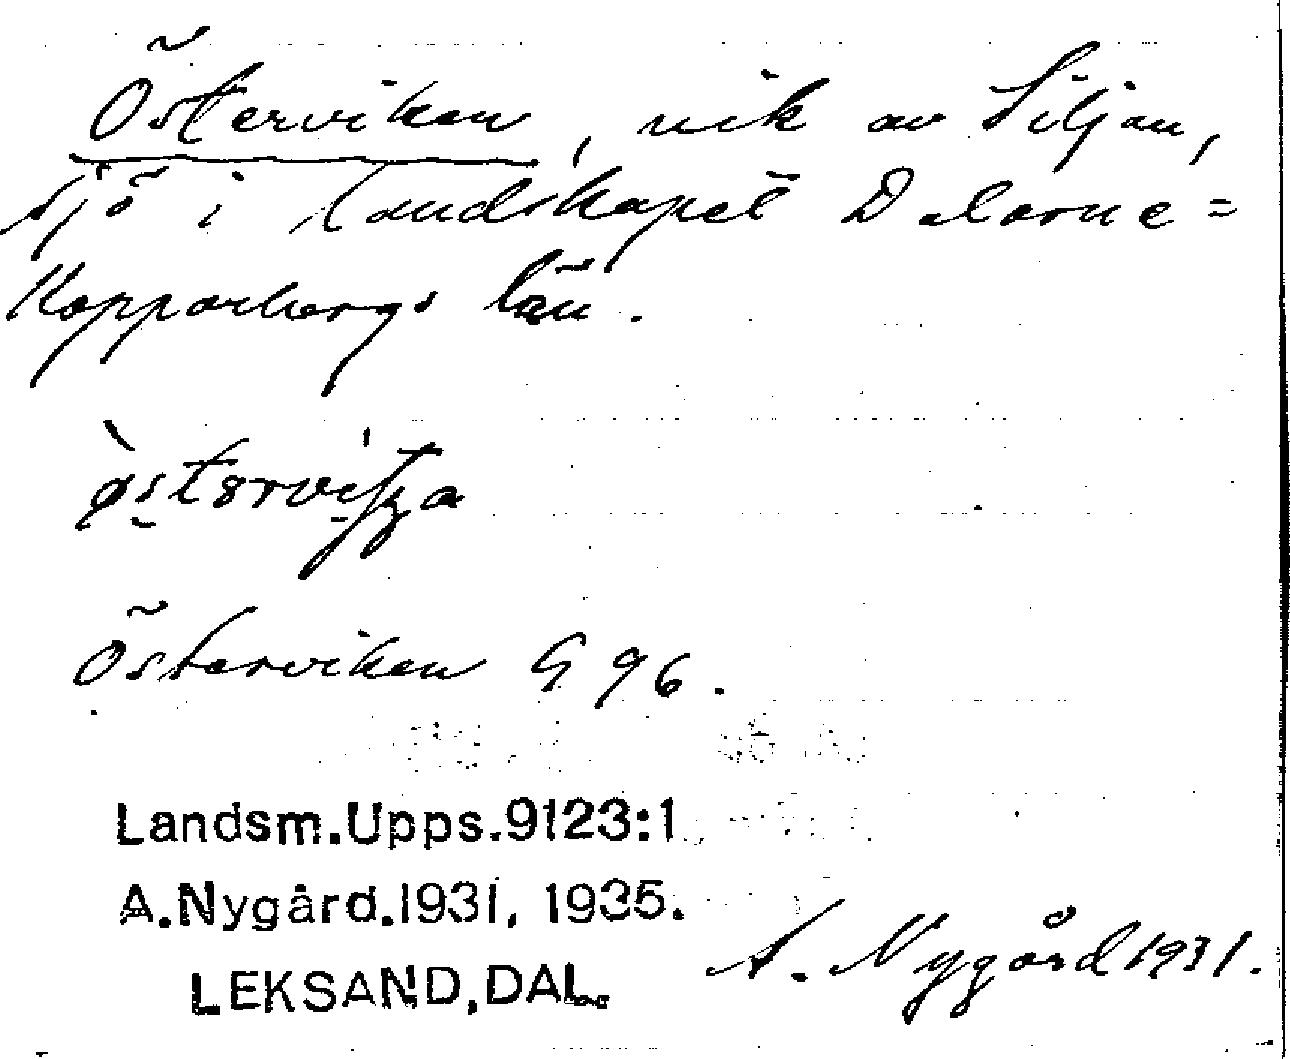 Österviken, vik av Siljan,
sjö i landskapet Dalarne=
Kopparbergs län.
Österviken G 96.
Landsm.Upps.9123:1
A.Nygård.1931, 1935.
A. Nygård 1931.
LEKSAND,DAL.